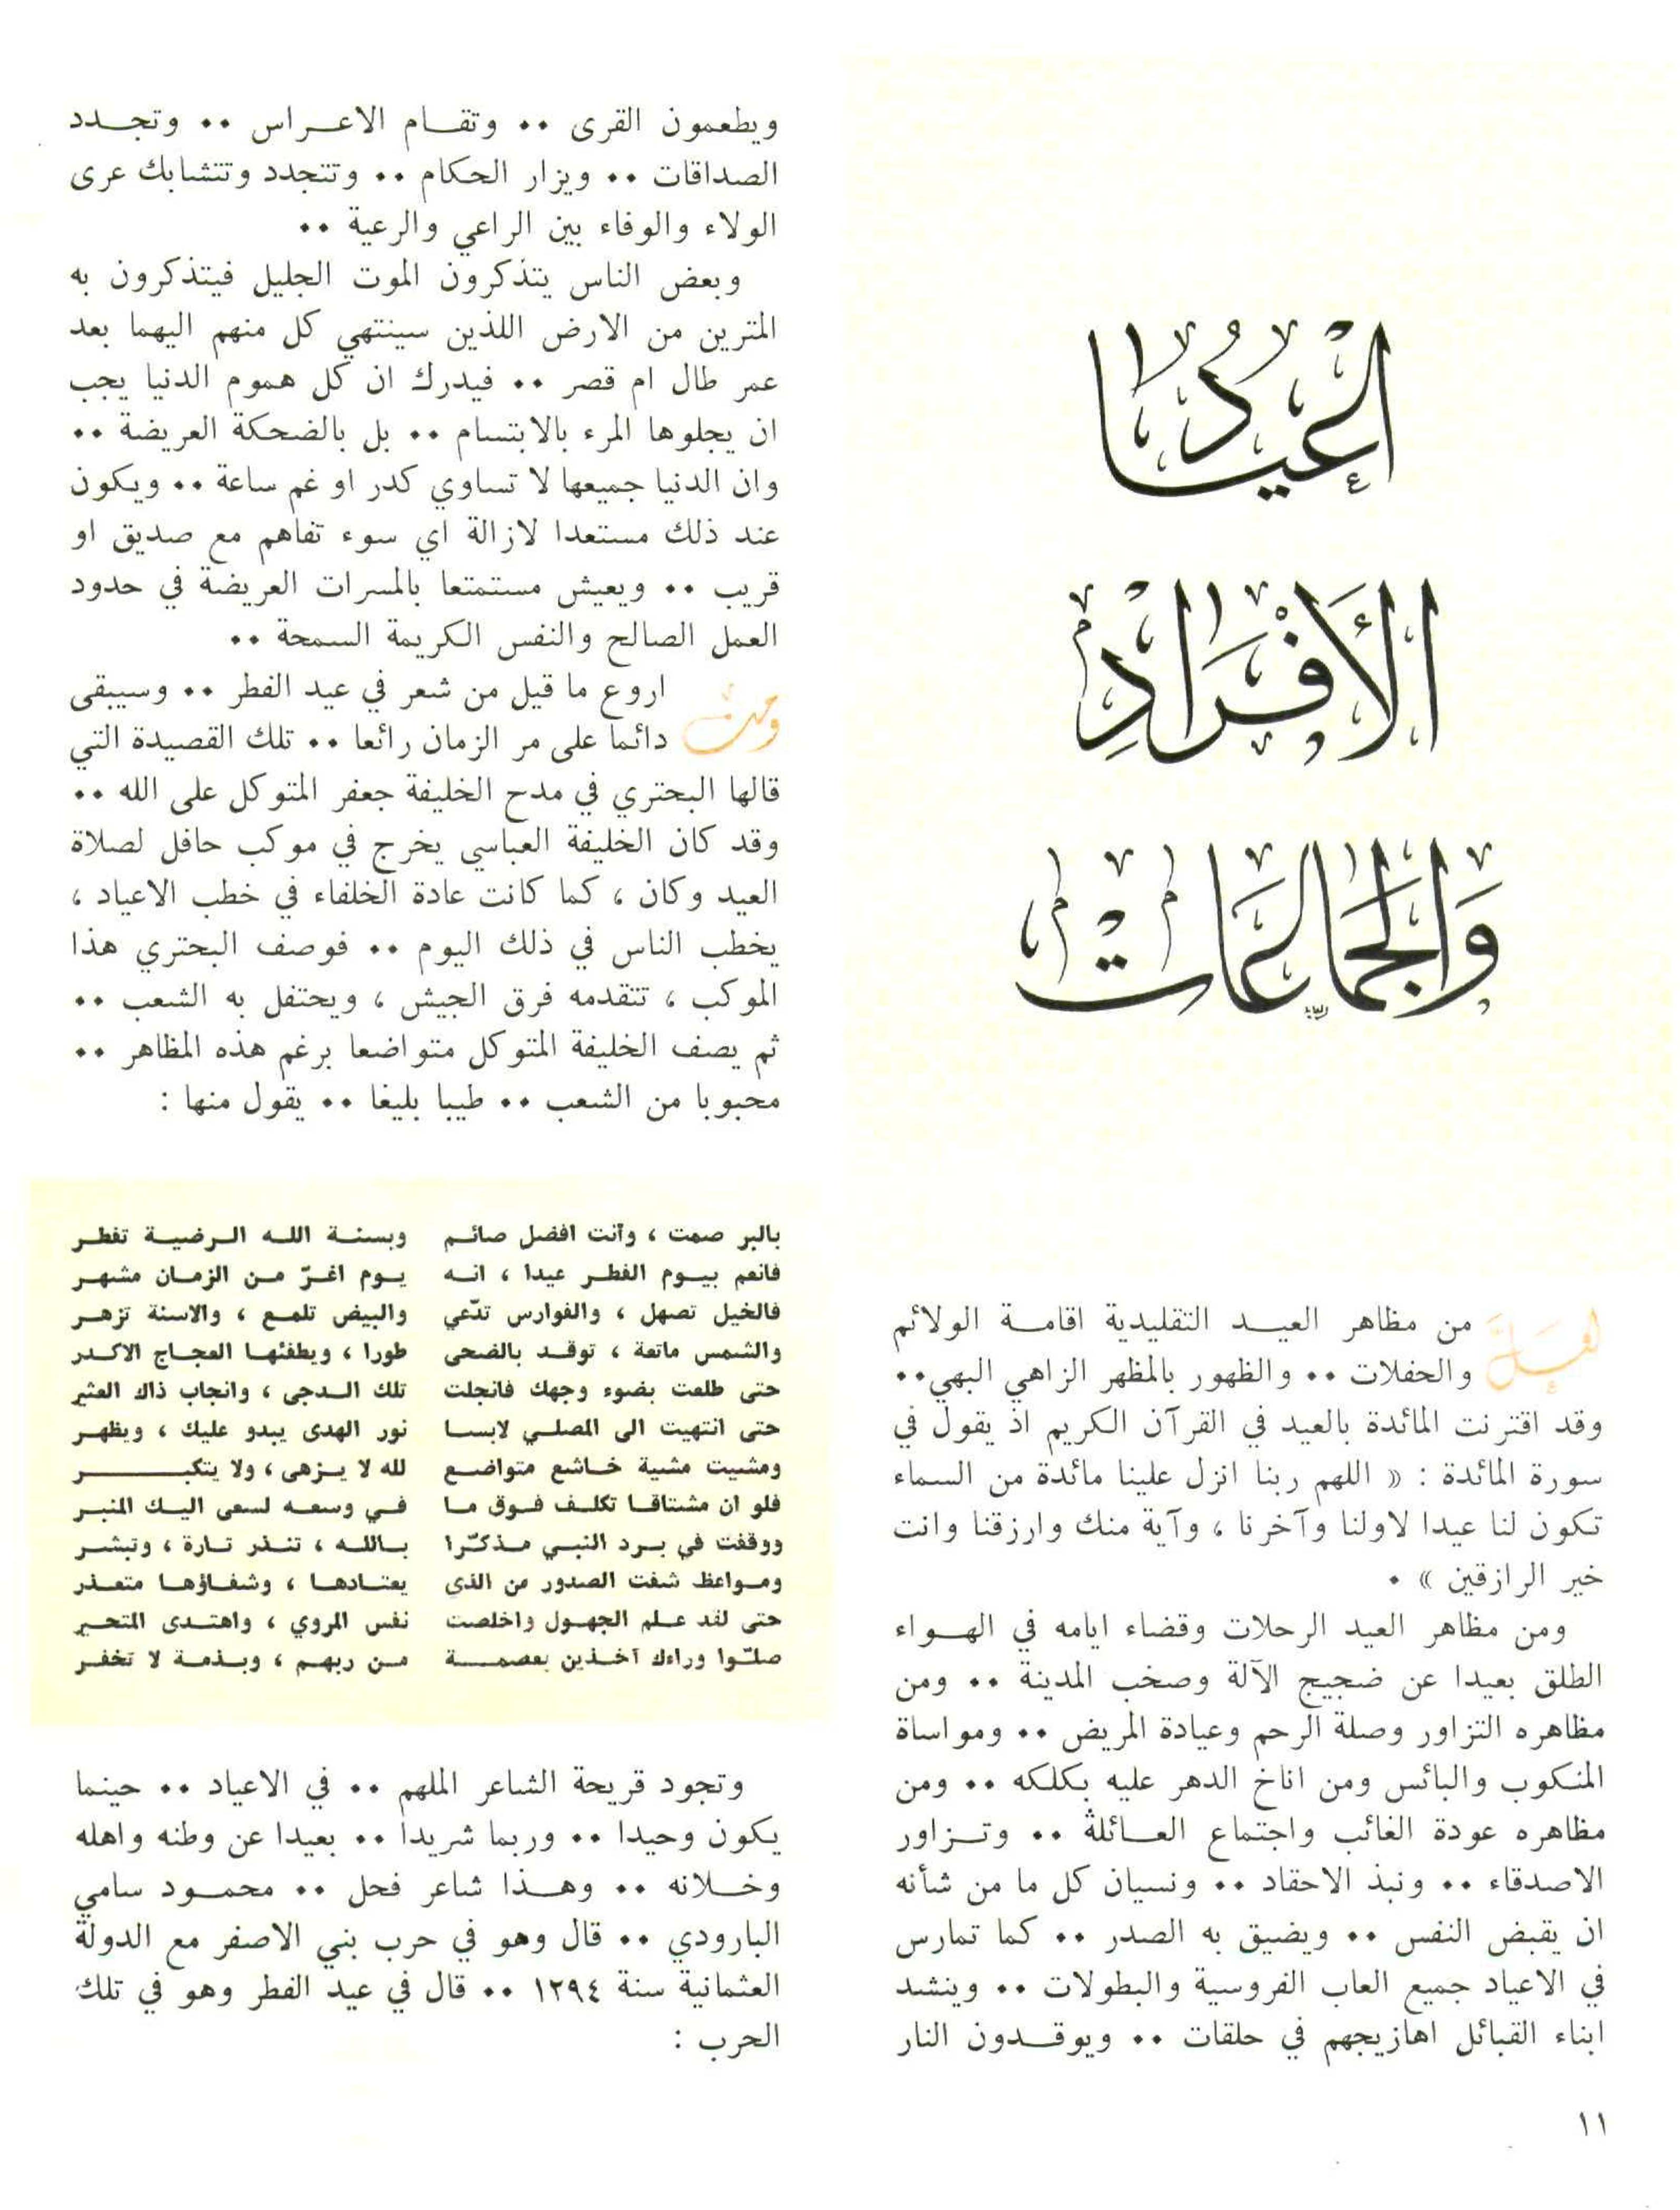 أعياد
الأفراد
والجماعات
لعل من مظاهر العيد التقليدية اقامة الولائم
والحفلات •• والظهور بالمظهر الزاهي البهي ••
وقد اقترنت المائدة بالعيد في القرآن الكريم اذ يقول في
سورة المائدة : « اللهم ربنا انزل علينا مائدة من السماء
تكون لنا عيدا لاولنا وآخرنا ، وآية منك وارزقنا وانت
خير الرازقين » •
ومن مظاهر العيد الرحلات وقضاء ايامه في الهواء
الطلق بعيدا عن ضجيج الآلة وصخب المدينة •• ومن
مظاهره التزاور وصلة الرحم وعيادة المريض •• ومواساة
المنكوب والبائس ومن اناخ الدهر عليه بكلكه •• ومن
مظاهره عودة الغائب واجتماع العائلة •• وتزاور
الاصدقاء •• ونبذ الاحقاد •• ونسيان كل ما من شأنه
ان يقبض النفس •• ويضيق به الصدر •• كما تمارس
في الاعياد جميع العاب الفروسية والبطولات •• وينشد
ابناء القبائل اهازيجهم في حلقات •• ويوقدون النار
ويطعمون القرى •• وتقام الاعراس •• وتجدد
الصداقات •• ويزار الحكام •• وتتجدد وتتشابك عرى
الولاء والوفاء بين الراعي والرعية ••
وبعض الناس يتذكرون الموت الجليل فيتذكرون به
المترين من الارض اللذين سينتهي كل منهم اليهما بعد
عمر طال ام قصر •• فيدرك ان كل هموم الدنيا يجب
ان يجلوها المرء بالابتسام •• بل بالضحكة العريضة ••
وان الدنيا جميعها لا تساوي كدر او غم ساعة •• ويكون
عند ذلك مستعدا لازالة اي سوء تفاهم مع صديق او
قريب •• ويعيش مستمتعا بالمسرات العريضة في حدود
العمل الصالح والنفس الكريمة السمحة ••
ومن اروع ما قيل من شعر في عيد الفطر •• وسيبقى
دائما على مر الزمان رائعا •• تلك القصيدة التي
قالها البحتري في مدح الخليفة جعفر المتوكل على الله ••
وقد كان الخليفة العباسي يخرج في موكب حافل لصلاة
العيد وكان ، كما كانت عادة الخلفاء في خطب الاعياد ،
يخطب الناس في ذلك اليوم •• فوصف البحتري هذا
الموكب ، تتقدمه فرق الجيش ، ويحتفل به الشعب ••
ثم يصف الخليفة المتوكل متواضعا برغم هذه المظاهر ••
محبوبا من الشعب •• طيبا بليغا •• يقول منها :
بالبر صمت ، وأنت افضل صائم وبسنة الله الرضية تفطر
فانعم بيوم الفطر عيدا ، انه يوم اغرّ من الزمان مشهر
فالخيل تصهل ، والفوارس تدّعي والبيض تلمع ، والاسنة تزهر
والشمس ماتعة ، توقد بالضحى طورا ، ويطفئها العجاج الاكدر
حتى طلعت بضوء وجهك فانجلت تلك الدجى ، وانجاب ذاك العثير
حتى انتهيت الى المصلي لابسا نور الهدى يبدو عليك ، ويظهر
ومشيت مشية خاشع متواضع لله لا يزهى ، ولا يتكبر
فلو ان مشتاقا تكلف فوق ما في وسعه لسعى اليك المنبر
ووقفت في برد النبي مذكّرا بالله ، تنذر تارة ، وتبشر
ومواعظ شفت الصدور من الذي يعتادها ، وشفاؤها متعذر
حتى لقد علم الجهول واخلصت نفس المروي ، واهتدى المتحير
صلّوا وراءك آخذين بعصمة من ربهم ، وبذمة لا تخفر
وتجود قريحة الشاعر الملهم •• في الاعياد •• حينما
يكون وحيدا •• وربما شريدا •• بعيدا عن وطنه واهله
وخلانه •• وهذا شاعر فحل •• محمود سامي
البارودي •• قال وهو في حرب بني الاصفر مع الدولة
العثمانية سنة ١٢٩٤ •• قال في عيد الفطر وهو في تلك
الحرب :
١١